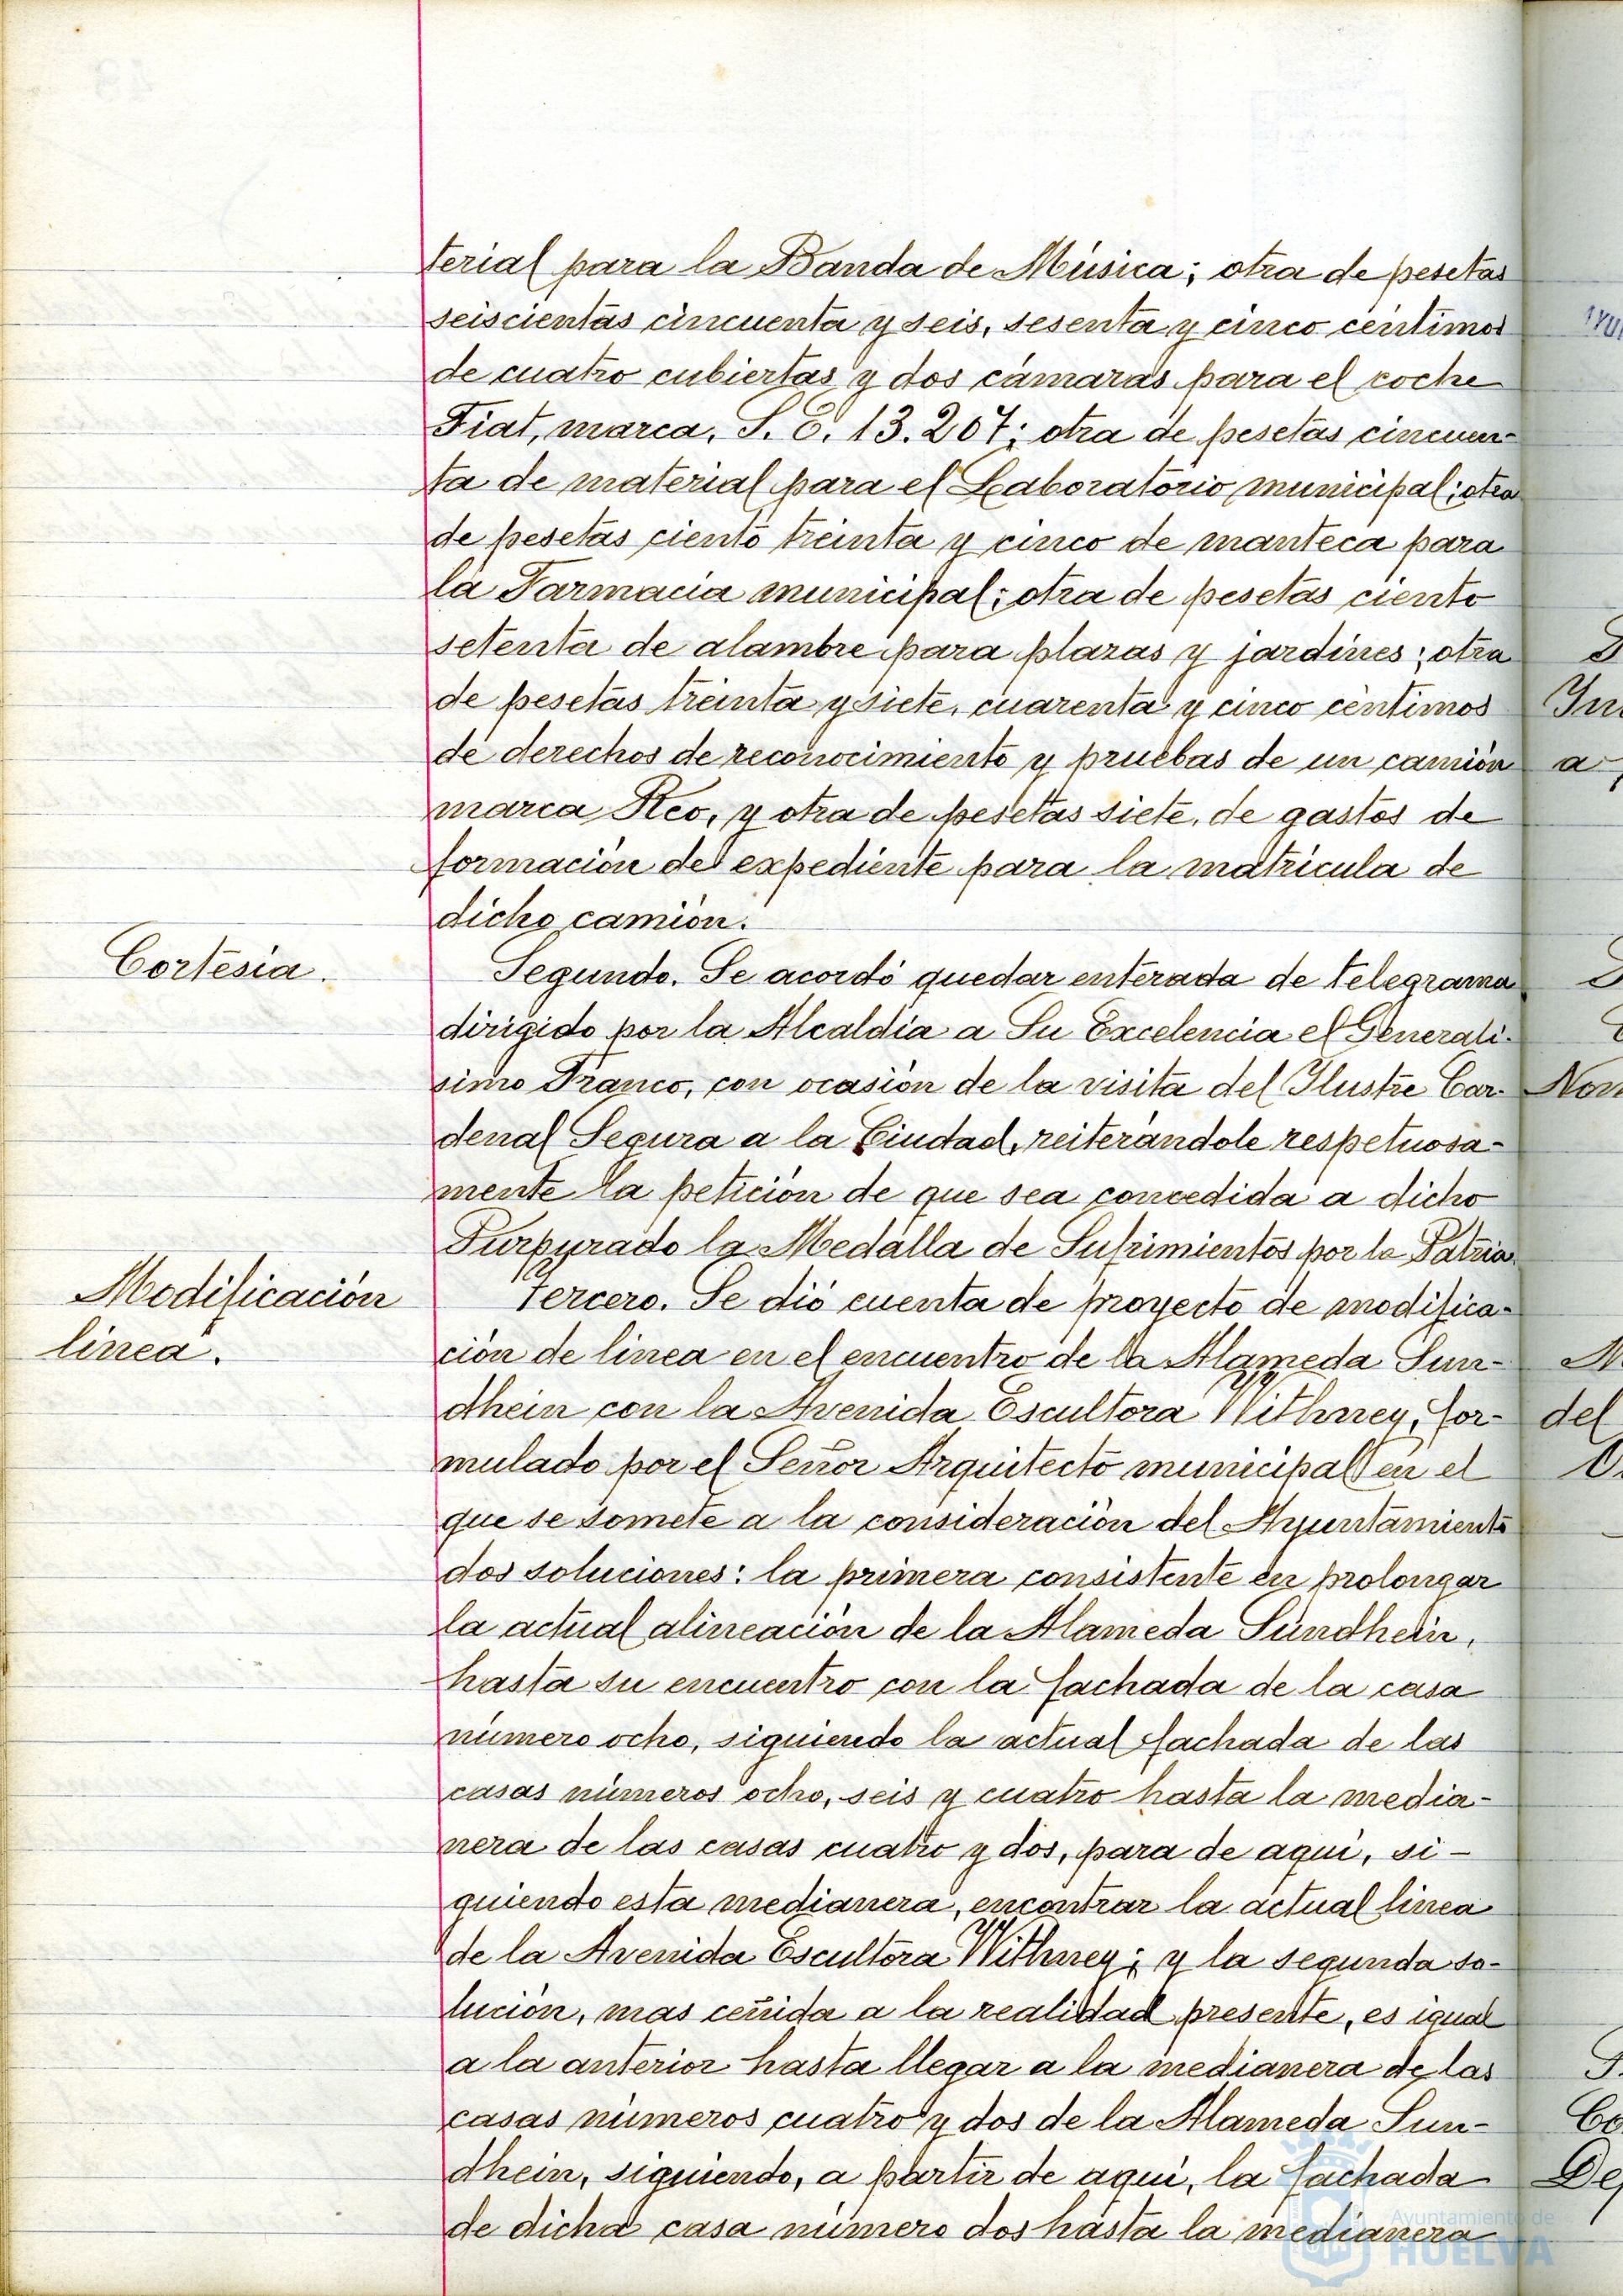 terial para la Banda de Música; otra de pesetas
seiscientas cincuenta y seis, sesenta y cinco centimos
de cuatro cubiertas y dos cámaras para el coche
Fiat, marca, S. E. 13.207; otra de pesetas cincuen-
ta de material para el Laboratorio municipal; otra
de pesetas ciento treinta y cinco de manteca para
la Farmacia municipal; otra de pesetas ciento
setenta de alambre para plazas y jardines; otra
de pesetas treinta y siete, cuarenta y cinco centimos
de derechos de reconocimiento y pruebas de un camión
marca Reo, y otra de pesetas siete, de gastos de
formación del expediente para la matricula de
dicho camión.
Cortesia.
Segundo. Se acordó quedar enterada de telegrama
dirigido por la Alcaldia a Su Excelencia el Generali-
simo Franco, con ocasión de la visita del Ilustre Car-
denal Segura a la Ciudad, reiterándole respetuosa-
mente la petición de que sea concedida a dicho
Purpurado la Medalla de Sufrimientos por la Patria.
Modificación
linea.
Tercero. Se dió cuenta de proyecto de modifica-
ción de linea en el encuentro de la Alameda Sun-
dhein con la Avenida Escultora Withney, for-
mulado por el Señor Arquitecto municipal en el
que se somete a la consideración del Ayuntamiento
dos soluciones: la primera consistente en prolongar
la actual alineación de la Alameda Sundhein,
hasta su encuentro con la fachada de la casa
número ocho, siguiendo la actual fachada de las
casas números ocho, seis y cuatro hasta la media-
nera de las casas cuatro y dos, para de aqui, si-
guiendo esta medianera, encontrar la actual linea
de la Avenida Escultora Withney; y la segunda so-
lución, mas ceñida a la realidad presente, es igual
a la anterior hasta llegar a la medianera de las
casas números cuatro y dos de la Alameda Sun-
dhein, siguiendo, a partir de aqui, la fachada
de dicha casa número dos hasta la medianera
Ayuntamiento de
HUELVA